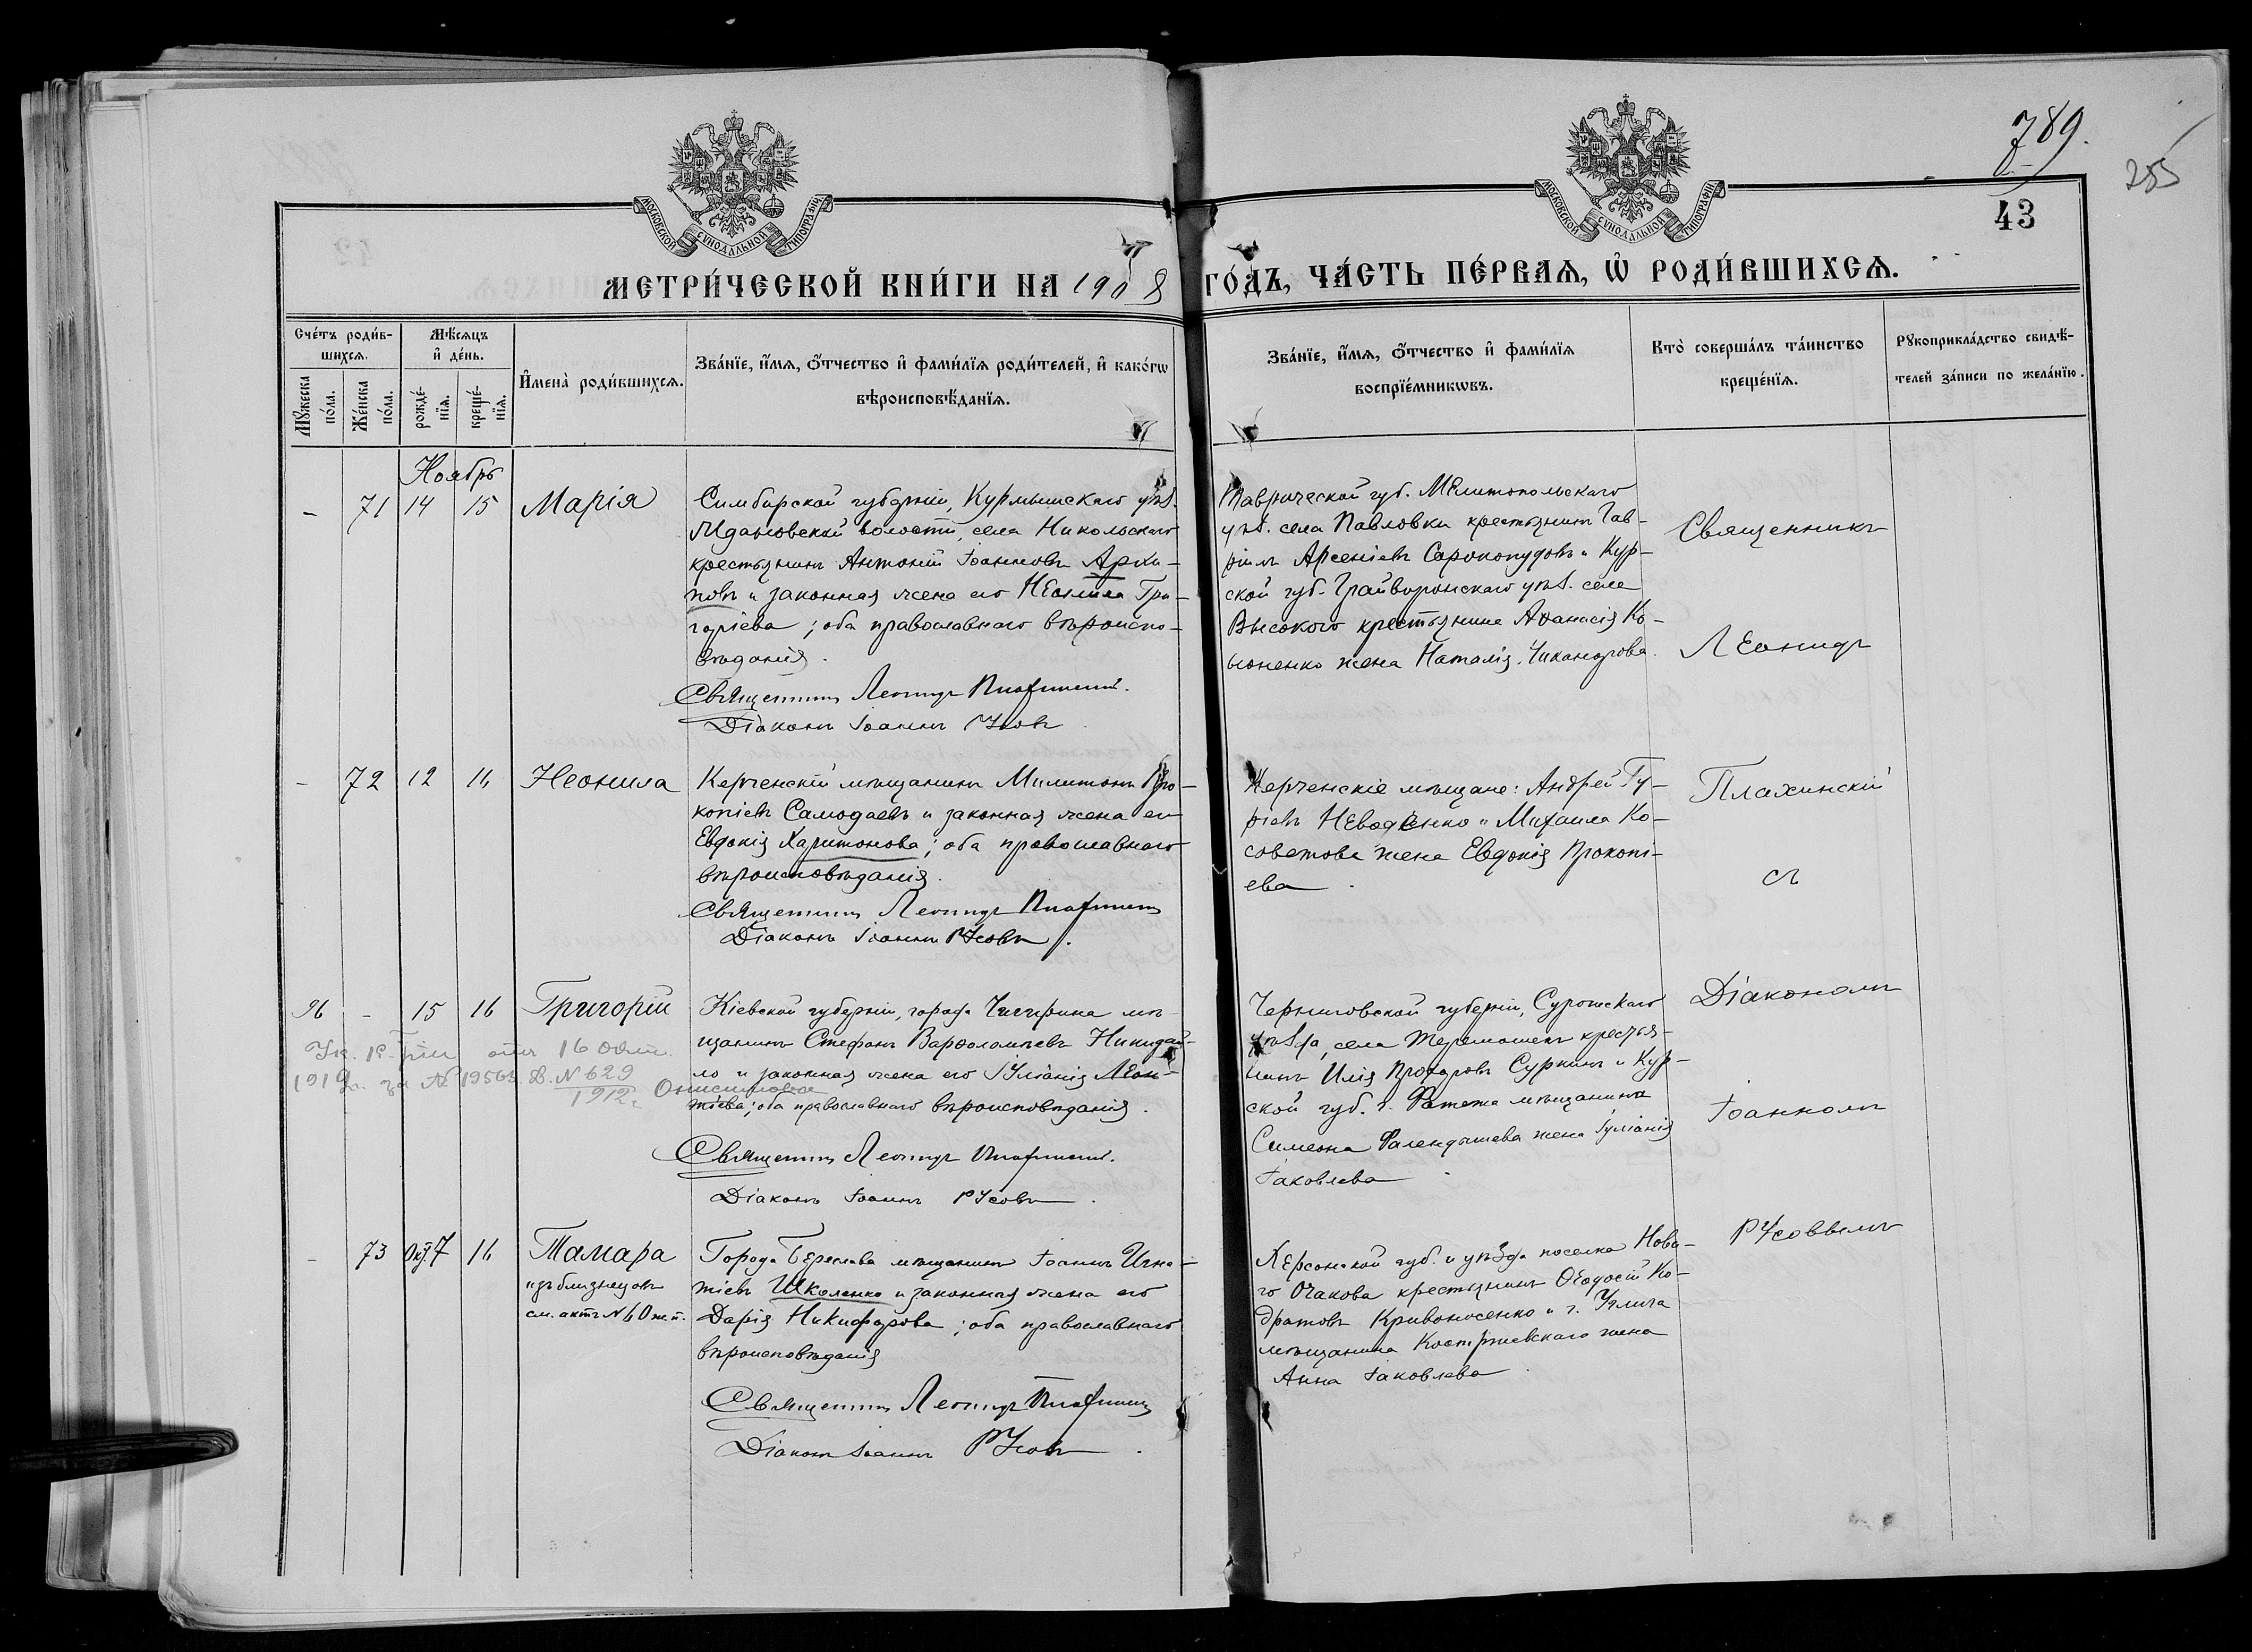 789.
255
43
МОСКОВСКОЙ СѴНОДАЛЬНОЙ ТИПОГРАФІИ
МОСКОВСКОЙ СѴНОДАЛЬНОЙ ТИПОГРАФІИ
МЕТРИ́ЧЕСКОЙ КНИ́ГИ НА 1908 ГО́ДЪ, ЧА́СТЬ ПЕ́РВАѦ, Ѡ҆ РОДИ́ВШИХСѦ.
Сче́тъ роди́в-
шихсѧ.
Мѣ́сѧцъ
и҆ де́нь.
Мꙋ́жеска по́ла.
Же́нска по́ла.
рожде́-нїѧ.
креще́-нїѧ.
И҆мена̀ роди́вшихсѧ.
Зва́нїе, и҆́мѧ, ѻ҆́тчество и҆ фами́лїѧ роди́телей, и҆ како́гѡ
вѣроисповѣ́данїѧ.
Зва́нїе, и҆́мѧ, ѻ҆́тчество и҆ фами́лїѧ
воспрїе́мникѡвъ.
Кто̀ соверша́лъ та́инство
креще́нїѧ.
Рꙋкоприкла́дство свидѣ́-
телей за́писи по жела́нїю.
Ноябрь
– 71 14 15 Марія
Симбирской губерніи, Курмышскаго уѣз.
волости, села Никольскаго
крестьянинъ Антоній Іоанновъ Архи-
повъ и законная жена его Неонила Гри-
горіева; оба православнаго вѣроиспо-
вѣданія.
Священникъ Леонидъ Плахинскій.
Діаконъ Іоаннъ Русовъ
Таврической губ. Мелитопольскаго
уѣз. села Павловки крестьянинъ Гав-
ріилъ Арсеніевъ Сорокопудовъ и Кур-
ской губ. Грайворонскаго уѣз. села
Высокого крестьянина Аѳанасія Ко-
жена Наталія Никанорова.
Священникъ
Леонидъ
– 72 12 16 Неонила
Керченскій мѣщанинъ Милитонъ Про-
копіевъ Самодаевъ и законная жена его
Евдокія Харитонова; оба православнаго
вѣроисповѣданія.
Священникъ Леонидъ Плахинскій
Діаконъ Іоаннъ Русовъ.
Керченскіе мѣщане: Андрей Гу-
ріевъ Неводенко и Михаила Ко-
саветова жена Евдокія Прокопі-
ева.
Плахинскій
съ
96 – 15 16 Григорій
16
1912 г. за № 19563 Д. № 629
1912 г.
Кіевской губерніи, города Чигирина мѣ-
щанинъ Стефанъ Варѳоломѣевъ Никидай-
ло и законная жена его Іуліанія Леон-
тіева; оба православнаго вѣроисповѣданія.
Священникъ Леонидъ Плахинскій.
Діаконъ Іоаннъ Русовъ.
Черниговской губерніи, Суражскаго
уѣзда, села крестья-
нинъ Илія Прохоровъ Суркинъ и Кур-
ской губ. г. Фатежа мѣщанина
Симеона Фалендышева жена Іуліанія
Іаковлева
Діакономъ
Іоанномъ
– 73 Окт. 7 16 Тамара
изъ близнецовъ
см. актъ № 60 ж.п.
Города Береслава мѣщанинъ Іоаннъ Игна-
тіевъ Школенко и законная жена его
Дарія Никифорова; оба православнаго
вѣроисповѣданія
Священникъ Леонидъ Плахинскій
Діаконъ Іоаннъ Русовъ.
Херсонской губ. и уѣзда поселка Ново-
го Очакова крестьянинъ Ѳеодосій Ко-
дратовъ Кривоносенко и г. Углича
мѣщанина жена
Анна Іаковлева.
Русовымъ